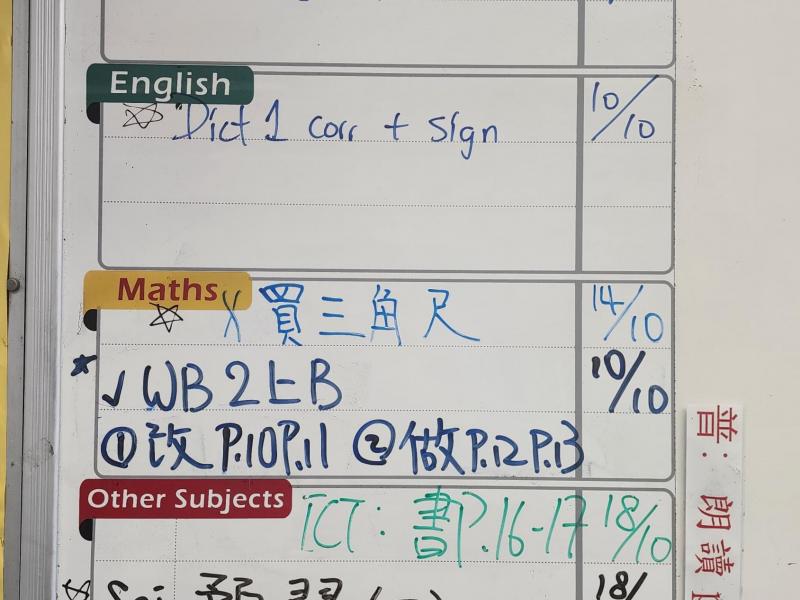 English
Dict 1 corr + sign 10/10
Maths
X 買三角尺 14/10
✓ WB 2上B 10/10
①改 P.10 P.11 ②做 P.12 P.13
Other Subjects
ICT: 書P.16-17 18/10
預習 18/
普: 朗讀